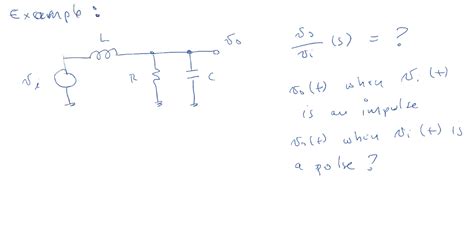 Example:
L
v₀
vᵢ
R
C
v₀/vᵢ (s) = ?
v₀(t) when vᵢ(t)
is an impulse
v₀(t) when vᵢ(t) is
a pulse ?